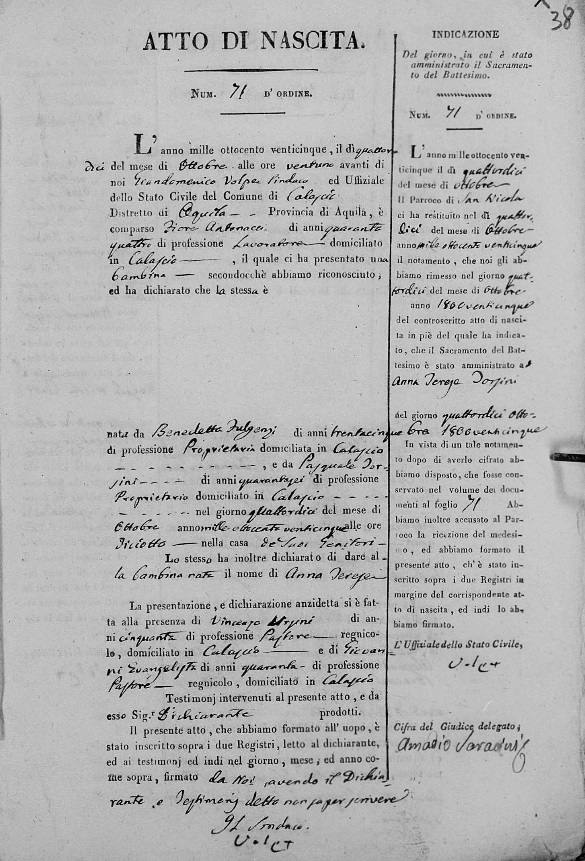 38
ATTO DI NASCITA.
NUM. 71 D'ORDINE.
L'anno mille ottocento venticinque, il dì quattor-
dici del mese di Ottobre alle ore ventuno avanti di
noi Giandomenico Volpe Sindaco ed Uffiziale
dello Stato Civile del Comune di Calascio
Distretto di Aquila - - Provincia di Aquila, è
comparso Fiore Antonacci di anni quaranta
quattro di professione Lavoratore domiciliato
in Calascio , il quale ci ha presentato una
Bambina secondochè abbiamo riconosciuto,
ed ha dichiarato che la stessa è
nata da Benedetta Fulgenzi di anni trentacinque
di professione Proprietaria domiciliata in Calascio
- - - - - - - - - , e da Pasquale Tor-
sini - - - di anni quarantasei di professione
Proprietario domiciliato in Calascio - -
- - - - - nel giorno quattordici del mese di
Ottobre anno mille ottocento venticinque alle ore
diciotto nella casa de' Suoi Genitori -
Lo stesso ha inoltre dichiarato di dare al-
la Bambina nata il nome di Anna Teresa
La presentazione, e dichiarazione anzidetta si è fat-
ta alla presenza di Vincenzo Ursini di an-
ni cinquanta di professione Pastore regnico-
lo, domiciliato in Calascio e di Giovan-
ni Evangelista di anni quaranta di professione
Pastore regnicolo, domiciliato in Calascio
Testimonj intervenuti al presente atto, e da
esso Sig.r Dichiarante prodotti.
Il presente atto, che abbiamo formato all'uopo, è
stato inscritto sopra i due Registri, letto al dichiarante,
ed ai testimonj ed indi nel giorno, mese, ed anno co-
me sopra, firmato da Noi avendo il Dichia-
rante, e Testimonj detto non saper scrivere
Il Sindaco
INDICAZIONE
Del giorno, in cui è stato
amministrato il Sacramen-
to del Battesimo.
NUM. 71 D'ORDINE.
L'anno mille ottocento ven-
ticinque il dì quattordici
del mese di Ottobre
Il Parroco di San Nicola
ci ha restituito nel dì quattor-
dici del mese di Ottobre
anno mille ottocento venticinque
il notamento, che noi gli ab-
biamo rimesso nel giorno quat-
tordici del mese di Ottobre
anno 1800 venticinque
del controscritto atto di nasci-
ta in piè del quale ha indica-
to, che il Sacramento del Bat-
tesimo è stato amministrato a
Anna Teresa Torsini
del giorno quattordici Otto-
bre 1800 venticinque
In vista di un tale notamen-
to dopo di averlo cifrato ab-
biamo disposto, che fosse con-
servato nel volume dei docu-
menti al foglio 71 Ab-
biamo inoltre accusato al Par-
roco la ricezione del medesi-
mo, ed abbiamo formato il
presente atto, ch'è stato in-
scritto sopra i due Registri in
margine del corrispondente at-
to di nascita, ed indi lo ab-
biamo firmato.
L'Uffiziale dello Stato Civile,
Cifra del Giudice delegato;
Amadio